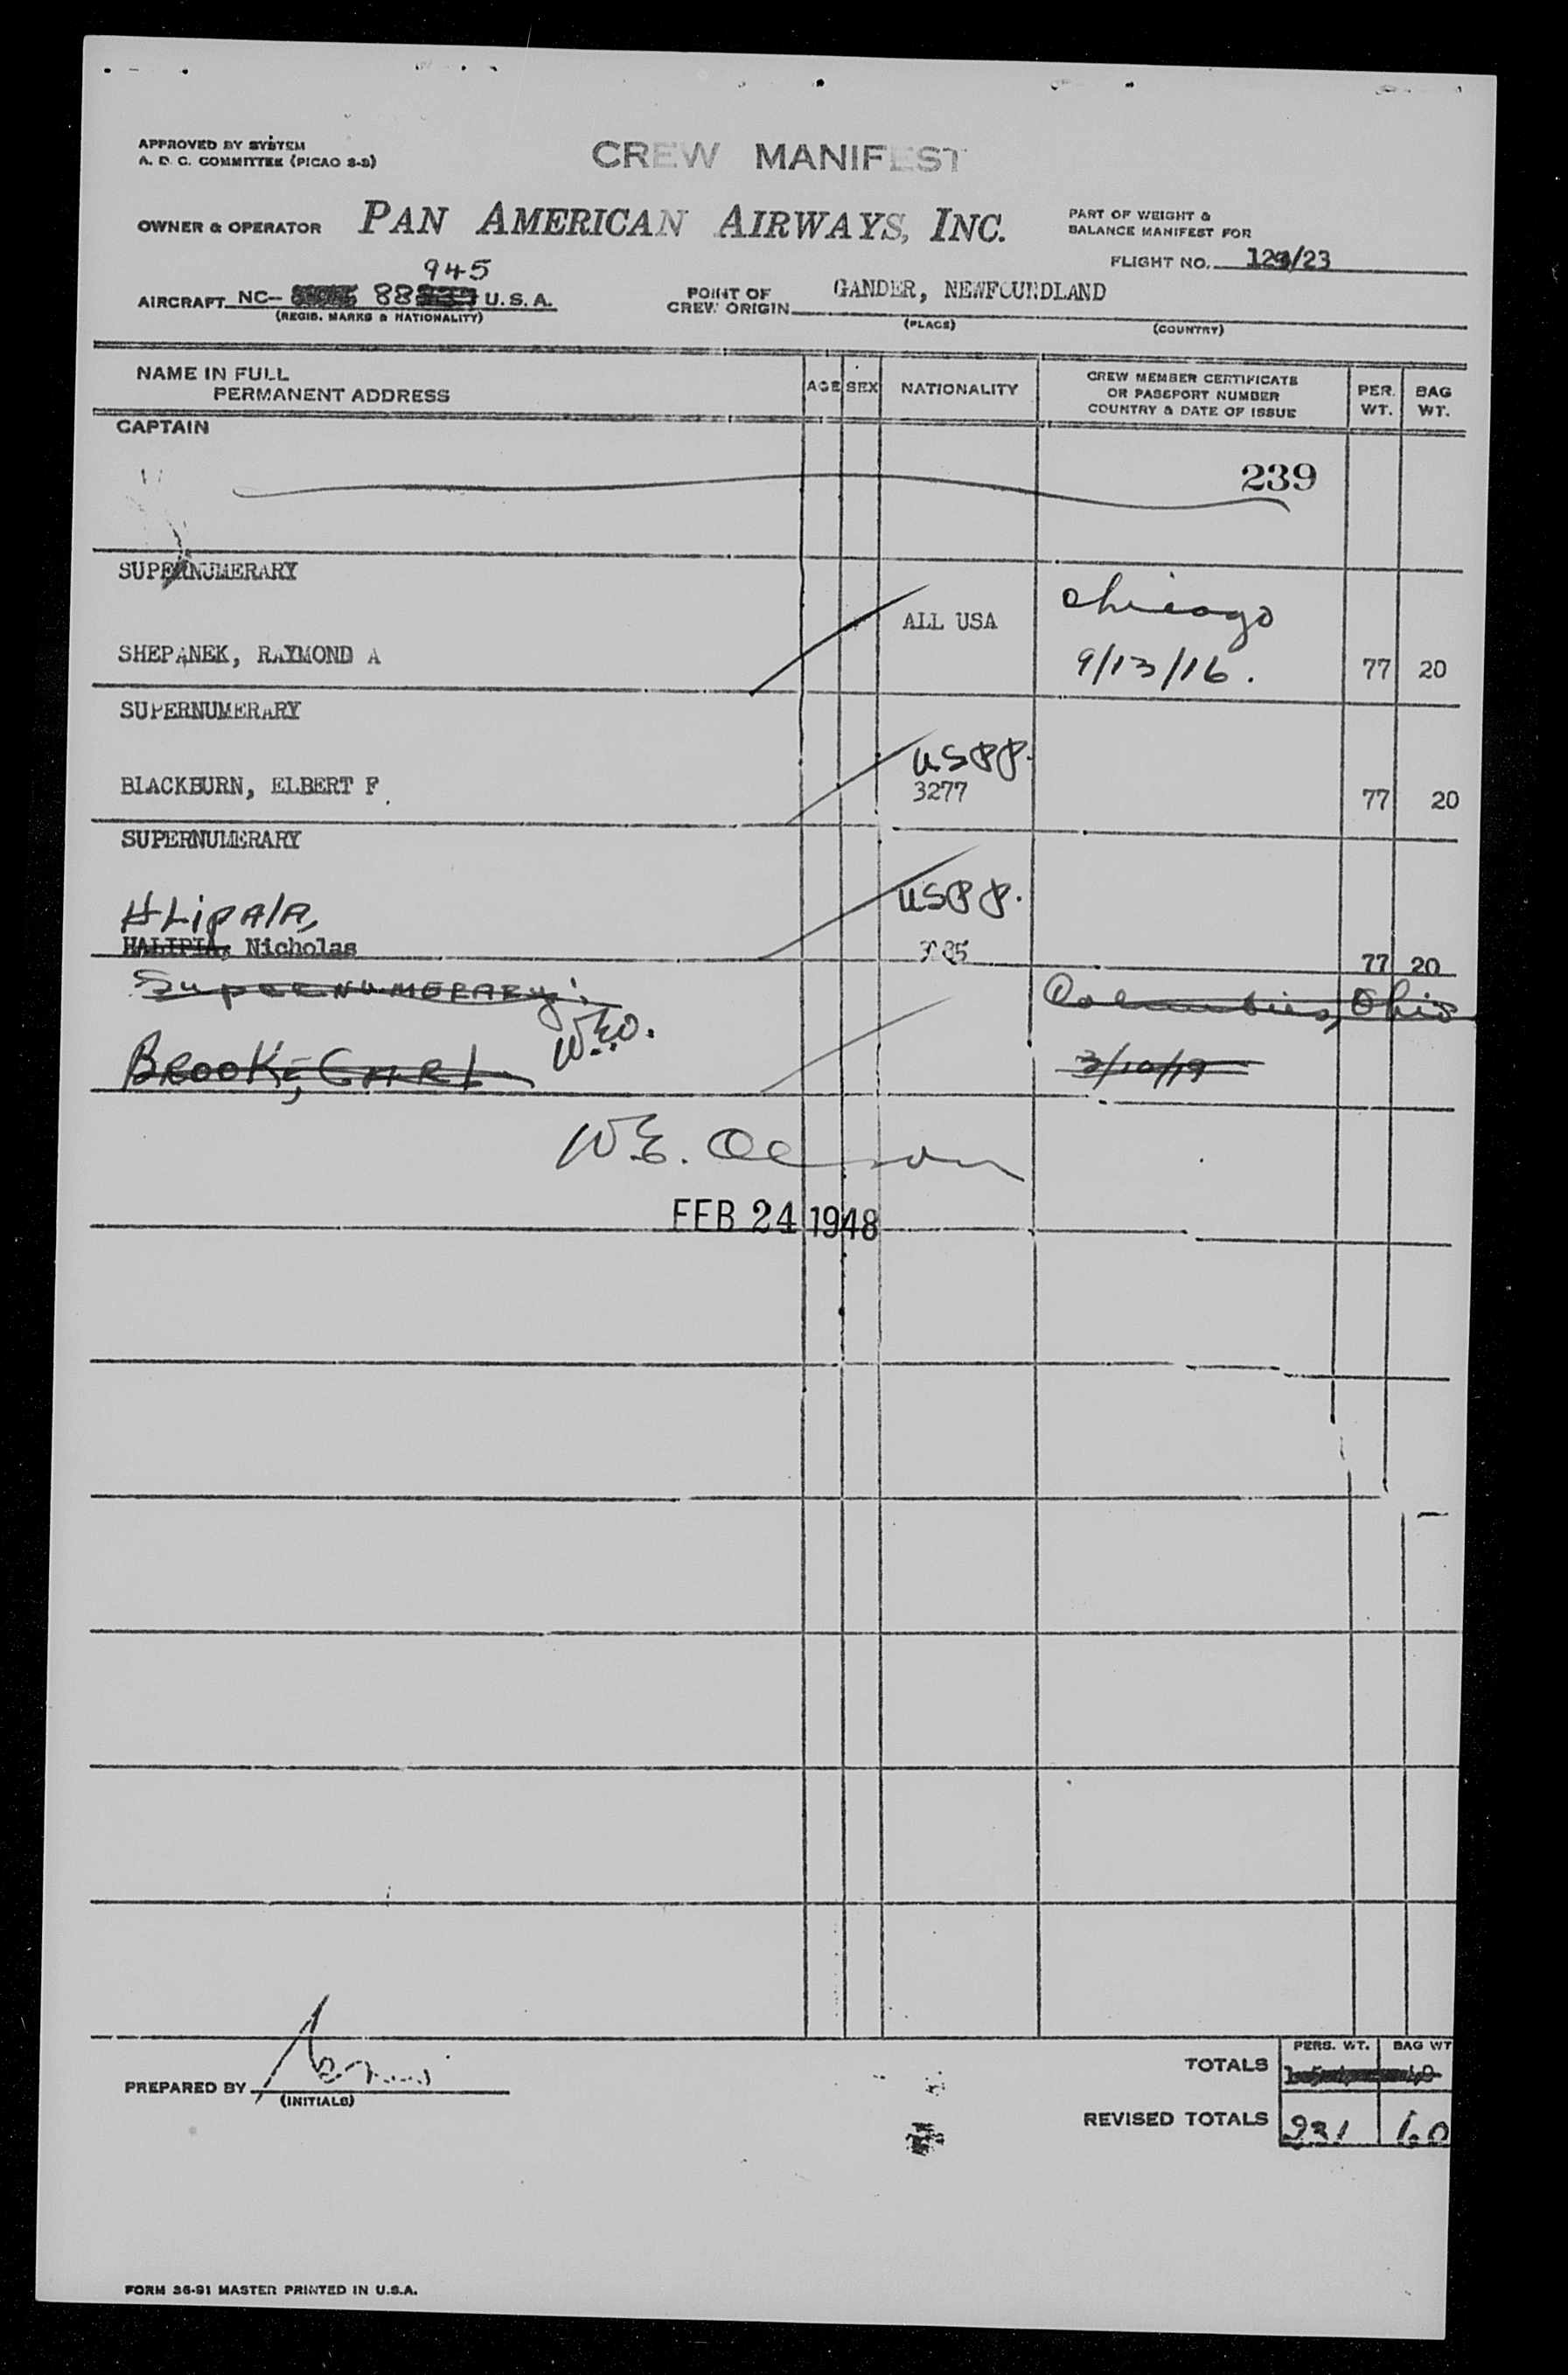 APPROVED BY SYSTEM
A. D. C. COMMITTEE (PICAO S-S)
CREW MANIFEST
OWNER & OPERATOR PAN AMERICAN AIRWAYS, INC.
PART OF WEIGHT &
BALANCE MANIFEST FOR
FLIGHT NO. /23
945
AIRCRAFT NC- 88 U. S. A.
(REGIS. MARKS & NATIONALITY)
POINT OF
CREW ORIGIN
GANDER, NEWFOUNDLAND
(PLACE) (COUNTRY)
NAME IN FULL
PERMANENT ADDRESS
AGE SEX NATIONALITY
CREW MEMBER CERTIFICATE
OR PASSPORT NUMBER
COUNTRY & DATE OF ISSUE
PER.
WT.
BAG
WT.
CAPTAIN
239
SUPERNUMERARY
ALL USA Chicago
SHEPANEK, RAYMOND A 9/13/16. 77 20
SUPERNUMERARY
USPP.
BLACKBURN, ELBERT F 3277 77 20
SUPERNUMERARY
HLipAlA, USPP.
HALIPIA, Nicholas 77 20
SupERNUMERARY Columbus, Ohio
W.E.O.
BROOK, CARL 3/10/19
W.E. Olson
FEB 24 1948
PREPARED BY
(INITIALS)
PERS. WT. BAG WT
TOTALS
REVISED TOTALS 231 60
FORM 36-91 MASTER PRINTED IN U.S.A.